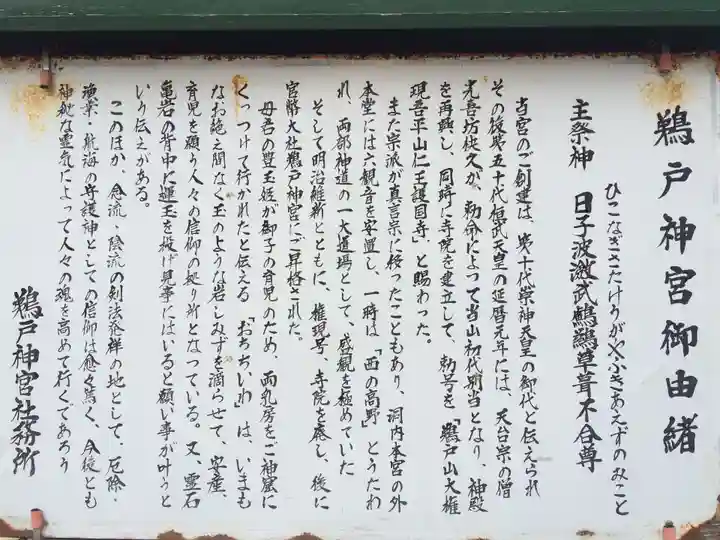 鵜戸神宮御由緒
ひこなぎさたけうがやふきあえずのみこと
主祭神　日子波瀲武鸕鷀草葺不合尊
古宮のご創建は、第十代崇神天皇の御代と伝えられ
その後第五十代桓武天皇の延暦元年には、天台宗の僧
光喜坊快久が、勅命によって当山初代別当となり、神殿
を再興し、同時に寺院を建立して、勅号を「鵜戸山大権
現吾平山仁王護国寺」と賜わった。
また宗派が真言宗に移ったこともあり、洞内本宮の外
本堂には六観音を安置し、一時は「西の高野」とうたわ
れ、両部神道の一大道場として、盛観を極めていた
そして明治維新とともに、権現号、寺院を廃し、後に
官幣大社鵜戸神宮にご昇格された。
母君の豊玉姫が御子の育児のため、両乳房をご神窟に
くっつけて行かれたと伝える「おちちいわ」は、いまも
なお絶え間なく玉のような岩しみずを滴らせて、安産、
育児を願う人々の信仰の拠り所となっている。又、霊石
亀岩の背中に運玉を投げ見事にはいると願い事が叶うと
いう伝えがある。
このほか、念流、陰流の剣法発祥の地として、厄除・
漁業・航海の守護神としての信仰は愈々篤く、今後とも
神秘な霊気によって人々の魂を高めて行くであろう
鵜戸神宮社務所